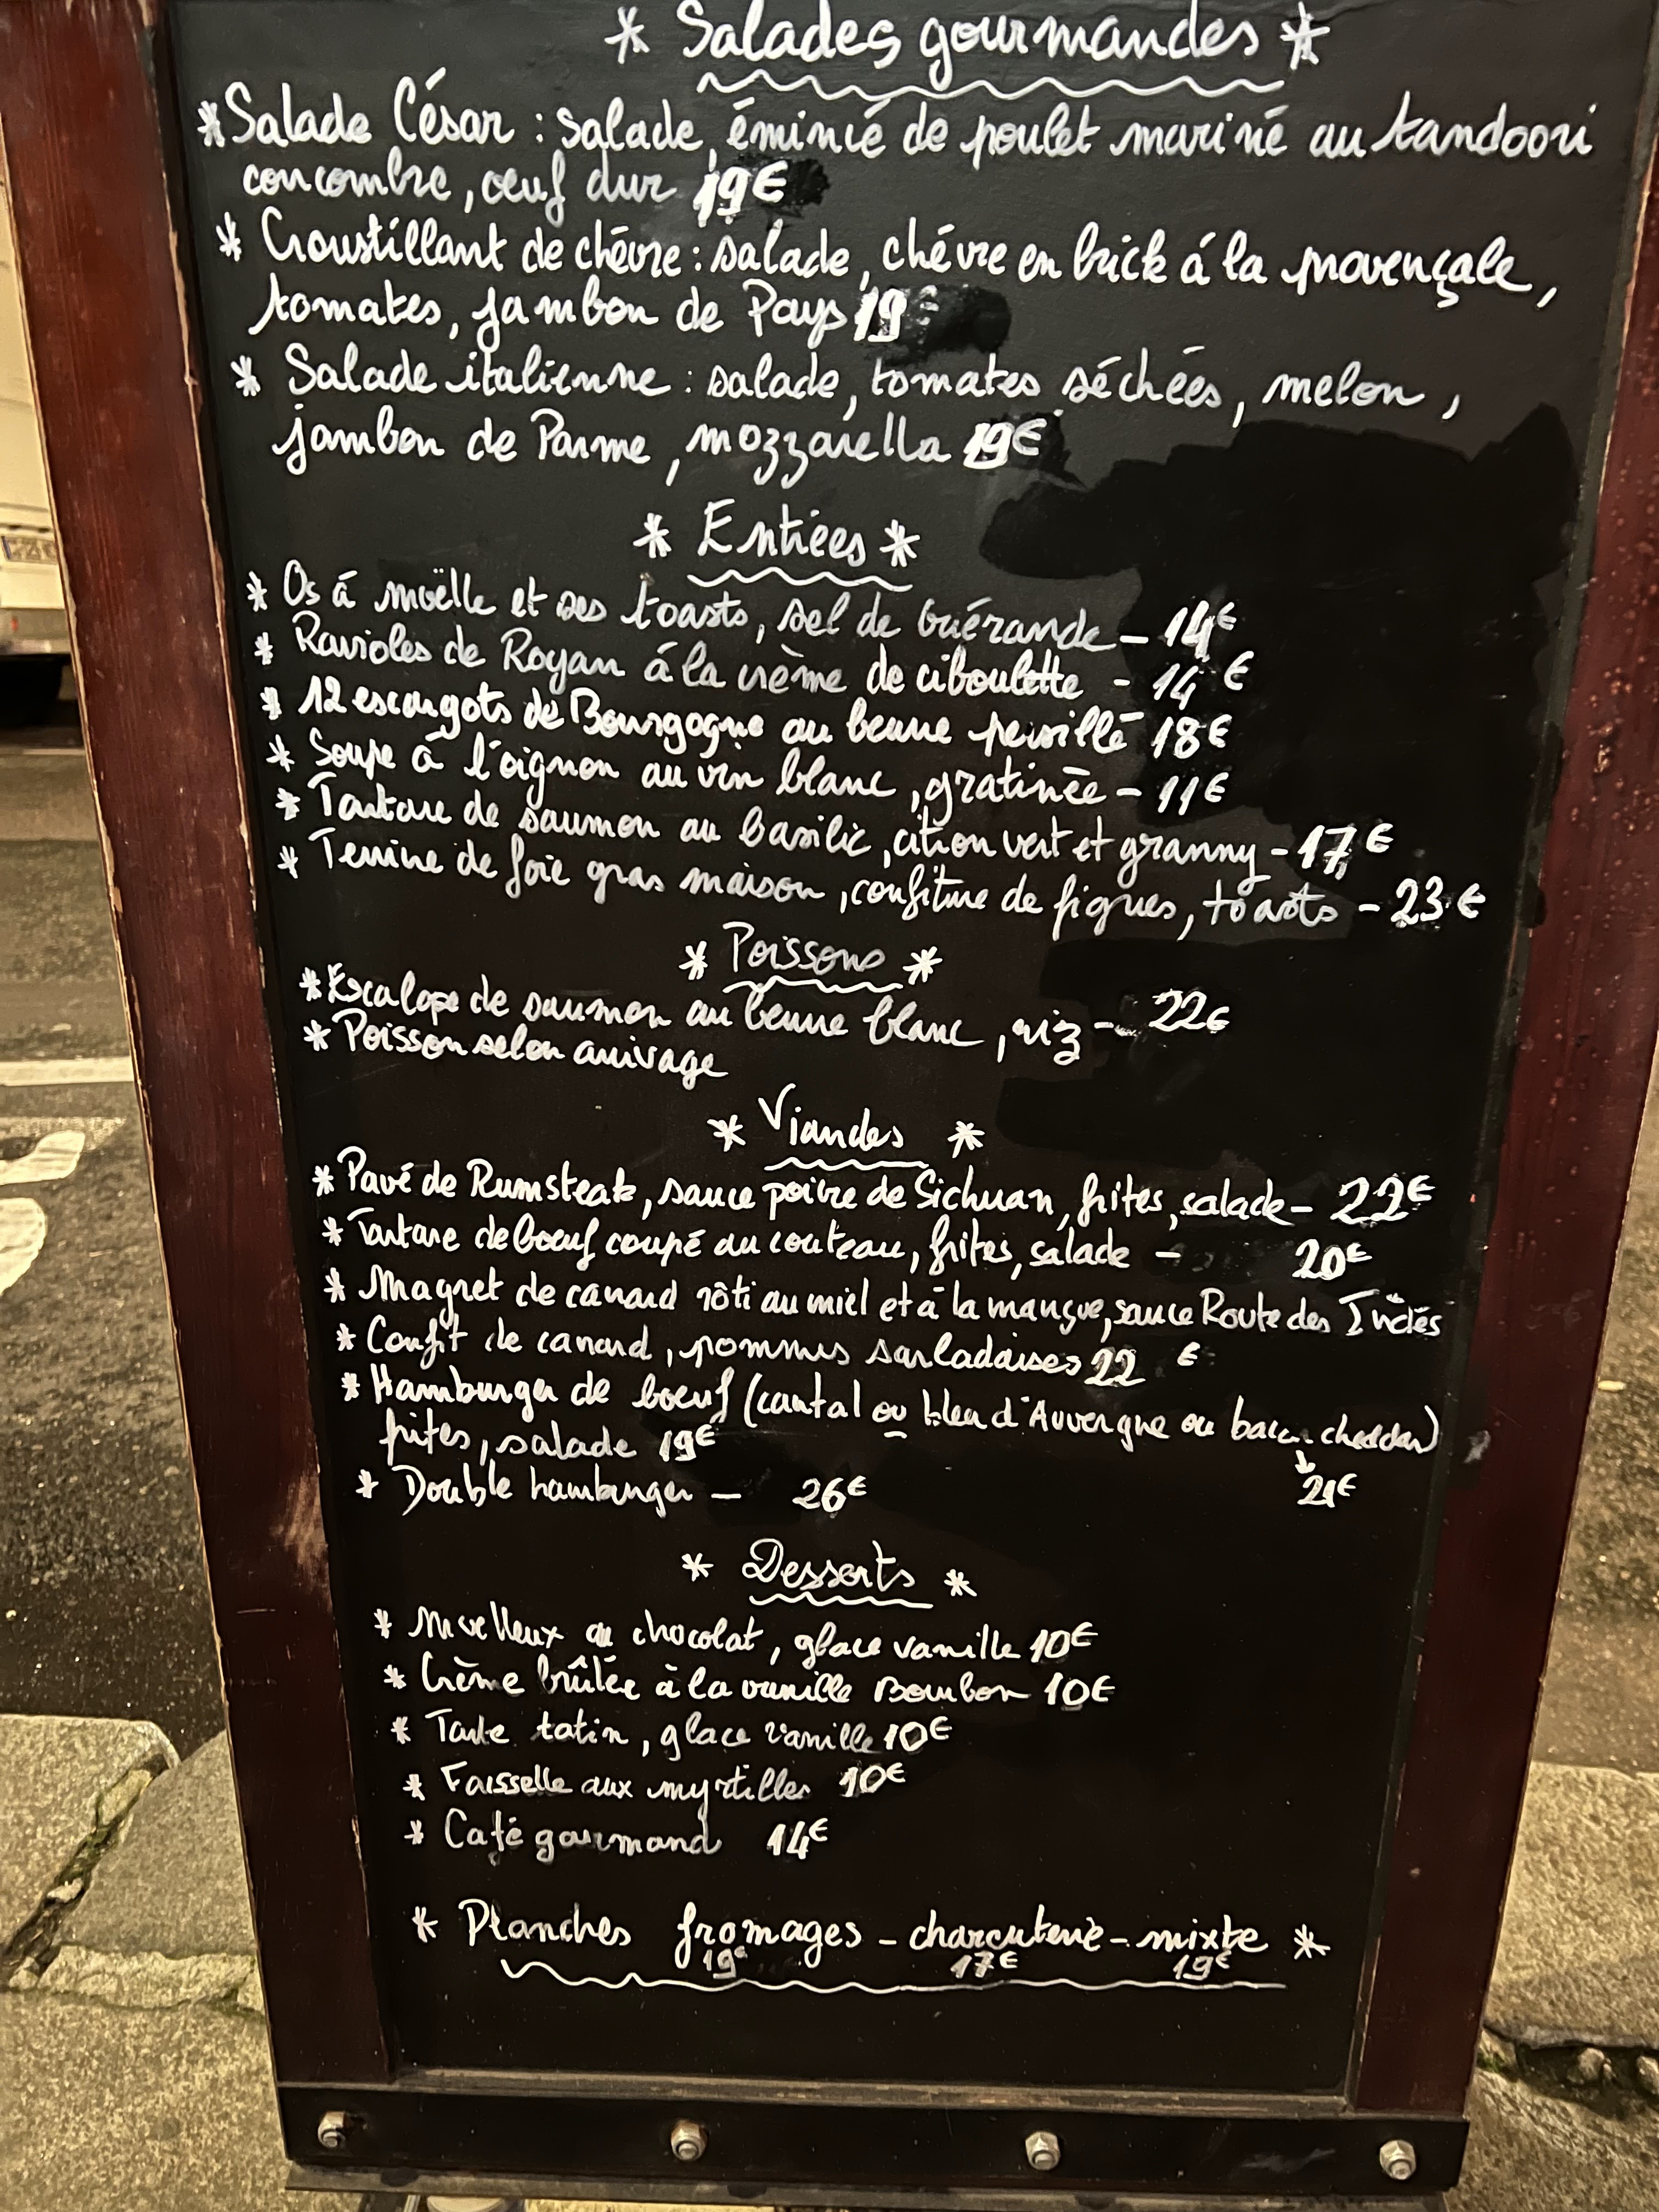 * Salades gourmandes *
* Salade César : salade, éminié de poulet mariné au tandoori
concombre, œuf dur 19€
* Croustillant de chèvre : salade, chévre en brick á la provençale,
tomates, jambon de Pays 19€
* Salade italienne : salade, tomates séchées, melon,
jambon de Parme, mozzarella 19€
* Entrées *
* Os á moëlle et ses toasts, sel de Guérande - 14€
* Ravioles de Royan á la crème de ciboulette - 14€
* 12 escargots de Bourgogne au beurre persillé 18€
* Soupe à l'oignon au vin blanc, gratinée - 11€
* Tartare de saumon au basilic, citron vert et granny - 17€
* Terrine de foie gras maison, confiture de figues, toasts - 23€
* Poissons *
* Escalope de saumon au beurre blanc, riz - 22€
* Poisson selon arrivage
* Viandes *
* Pavé de Rumsteak, sauce poivre de Sichuan, frites, salade - 22€
* Tartare de boeuf coupé au couteau, frites, salade - 20€
* Magret de canard rôti au miel et à la mangue, sauce Route des Indes
* Confit de canard, pommes sarladaises 22 €
* Hamburger de boeuf (cantal ou bleu d'Auvergne ou bacon cheddar)
frites, salade 19€
* Double hamburger - 26€ 21€
* Desserts *
* Moelleux au chocolat, glace vanille 10€
* Crème brûlée à la vanille Bourbon 10€
* Tarte tatin, glace vanille 10€
* Faisselle aux myrtilles 10€
* Café gourmand 14€
* Planches fromages - charcuterie - mixte *
19€ 17€ 19€